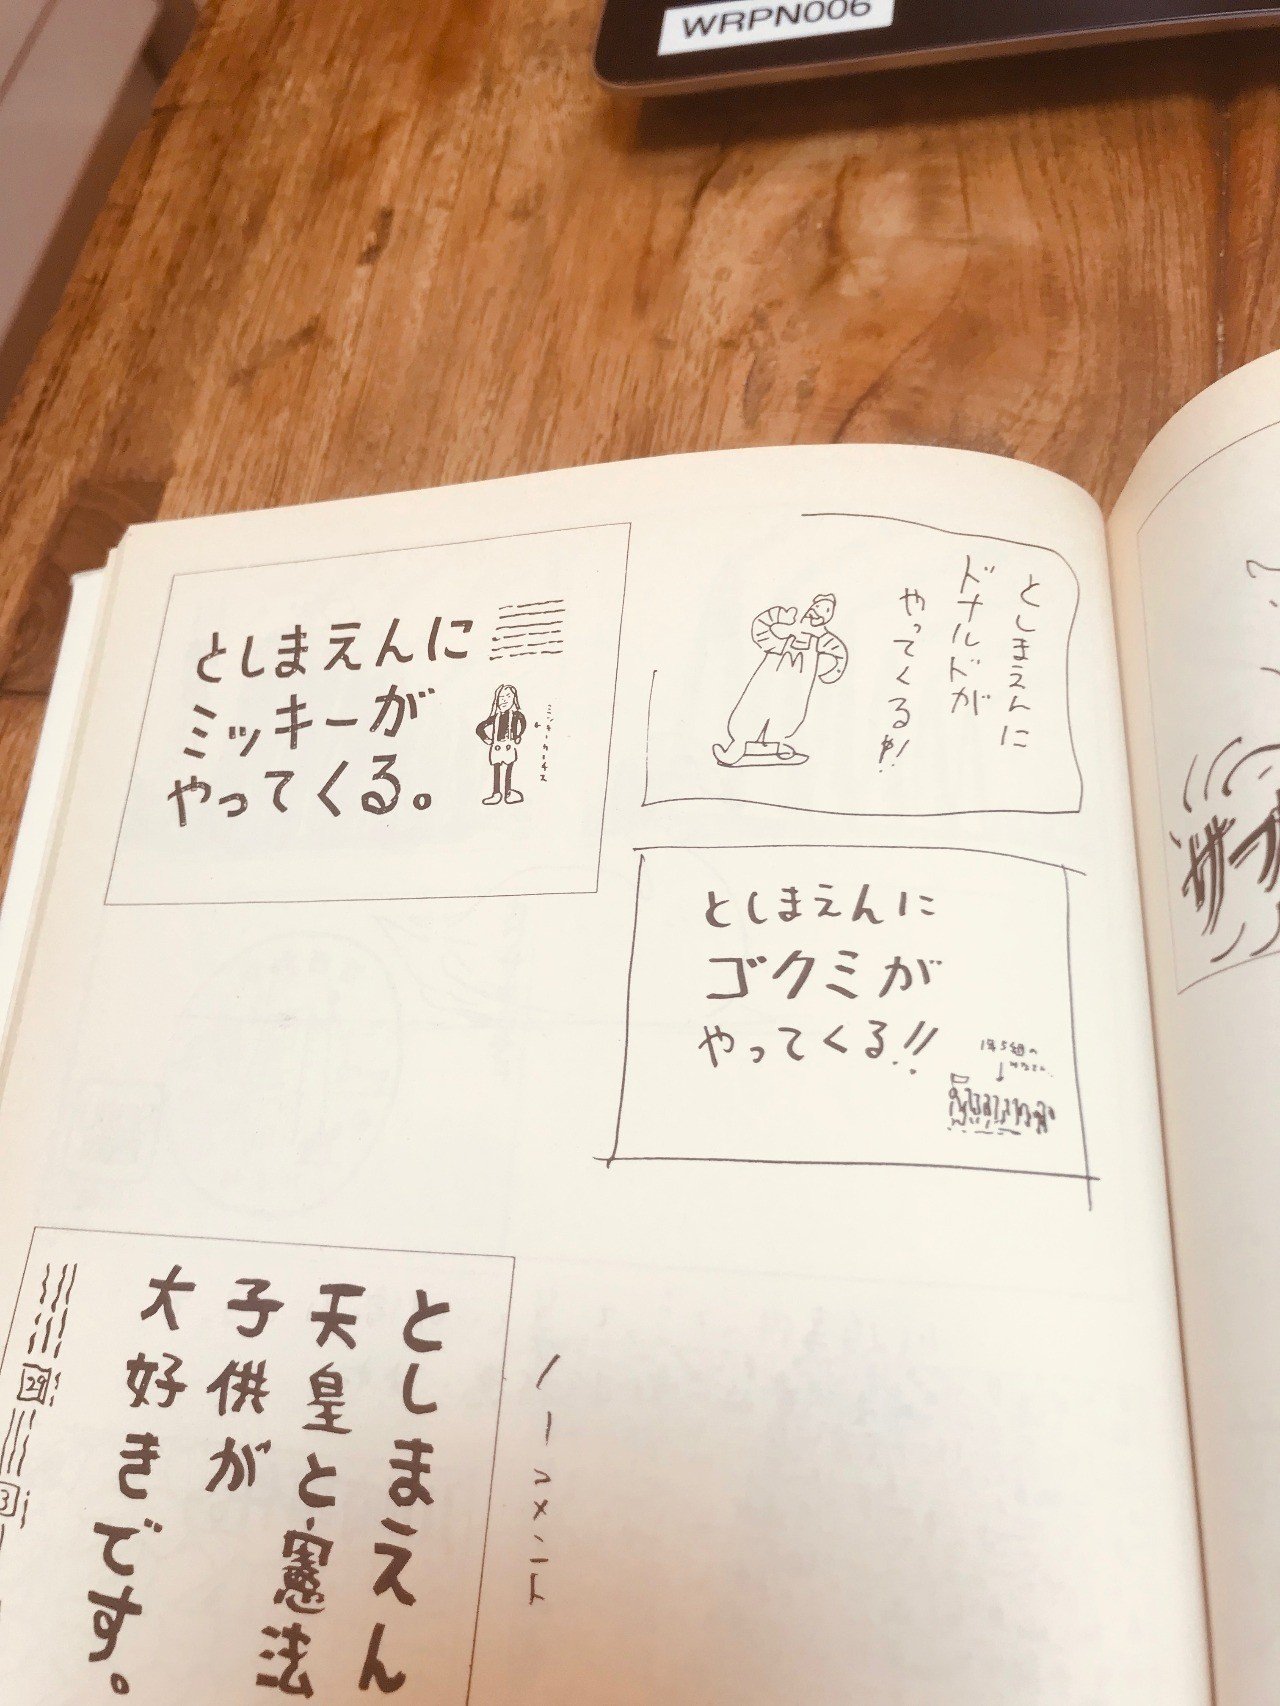 WRPN006
としまえんに
ミッキーが
やってくる。
ミッキーカーチス
としまえんに
ドナルドが
やってくる!!
M
としまえんに
ゴクミが
やってくる!!
1年5組の
としまえん
天皇と憲法
子供が
大好きです。
29
3
ノーコメント